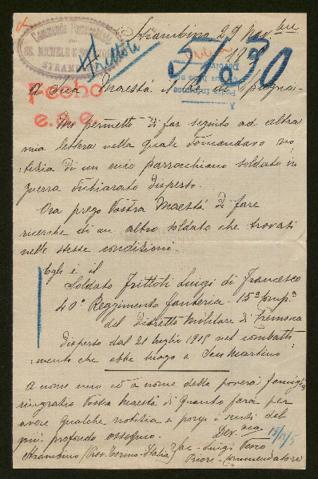 Strambino, 29 Nov.bre
Frittoli
5/30
A Sua Maestà il Re di
Mi permetto di far seguito ad altra
mia lettera nella quale domandavo no-
tizia di un mio parrocchiano soldato in
guerra dichiarato disperso.
Ora prego Vostra Maestà di fare
ricerche di un altro soldato che trovasi
nelle stesse condizioni.
Egli è il
Soldato Frittoli Luigi di Francesco
40° Reggimento fanteria - 15ª comp.ª
del Distretto Militare di Cremona
disperso dal 21 luglio 1915 nel combatti-
mento che ebbe luogo a San Martino
A nome mio ed a nome della povera famiglia
ringrazio Vostra Maestà di quanto farà per
avere qualche notizia e porgo i sensi del
mio profondo ossequio.
Strambino (Prov. Torino - Italia) Sac. Luigi
Priore